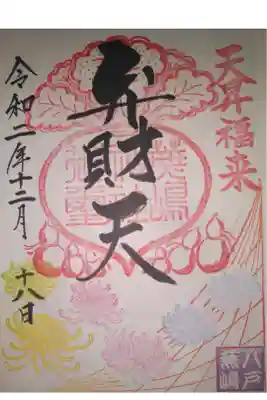 天昇福来
弁財天
令和二年十二月
十八日
八戸
蕪嶋